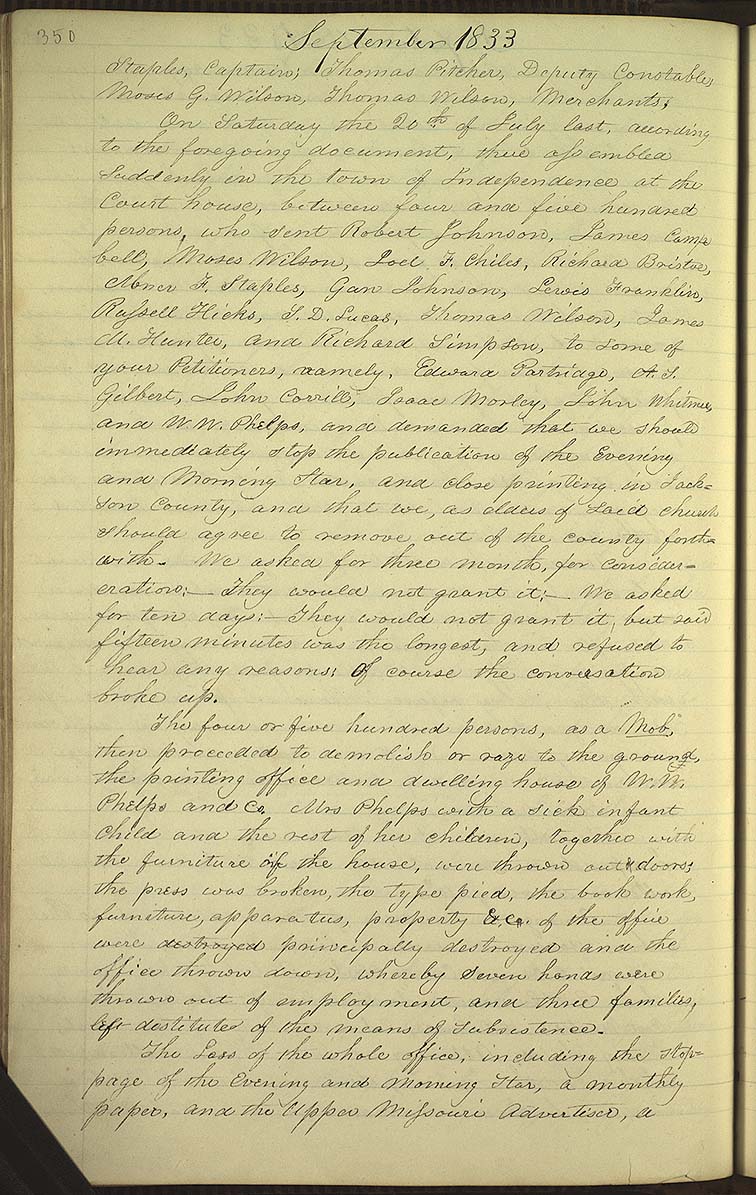 350
September 1833
Staples, Captain; Thomas Pitcher, Deputy Constable;
Moses G. Wilson, Thomas Wilson, Merchants;
On Saturday the 20th of July last, according
to the foregoing document, there assembled
suddenly in the town of Independence at the
Court house, between four and five hundred
persons, who sent Robert Johnson, James Camp
bell, Moses Wilson, Joel F. Chiles, Richard Bristoe,
Abner F. Staples, Gan Johnson, Lewis Franklin,
Russell Hicks, S. D. Lucas, Thomas Wilson, James
M. Hunter, and Richard Simpson, to some of
your Petitioners, namely, Edward Partridge, A. S.
Gilbert, John Corrill, Isaac Morley, John Whitmer,
and W. W. Phelps, and demanded that we should
immediately stop the publication of the Evening
and Morning Star, and close printing in Jack=
son County, and that we, as elders of said church
should agree to remove out of the county forth=
with. We asked for three month, for consider-
eration;— They would not grant it;— We asked
for ten days:— They would not grant it, but said
fifteen minutes was the longest, and refused to
hear any reasons: Of course the conversation
broke up.
The four or five hundred persons, as a Mob,
then proceeded to demolish or raze to the ground,
the printing office and dwelling house of W. W.
Phelps and Co. Mrs Phelps with a sick infant
child and the rest of her children, together with
the furniture of the house, were thrown out doors;
the press was broken, the type pied, the book work,
furniture, apparatus, property &c. of the office
were destroyed principally destroyed and the
office thrown down, whereby seven hands were
thrown out of employment, and three families,
left destitute of the means of subsistence.
The Loss of the whole office, including the stop=
page of the Evening and Morning Star, a monthly
paper, and the Upper Missouri Advertiser, a